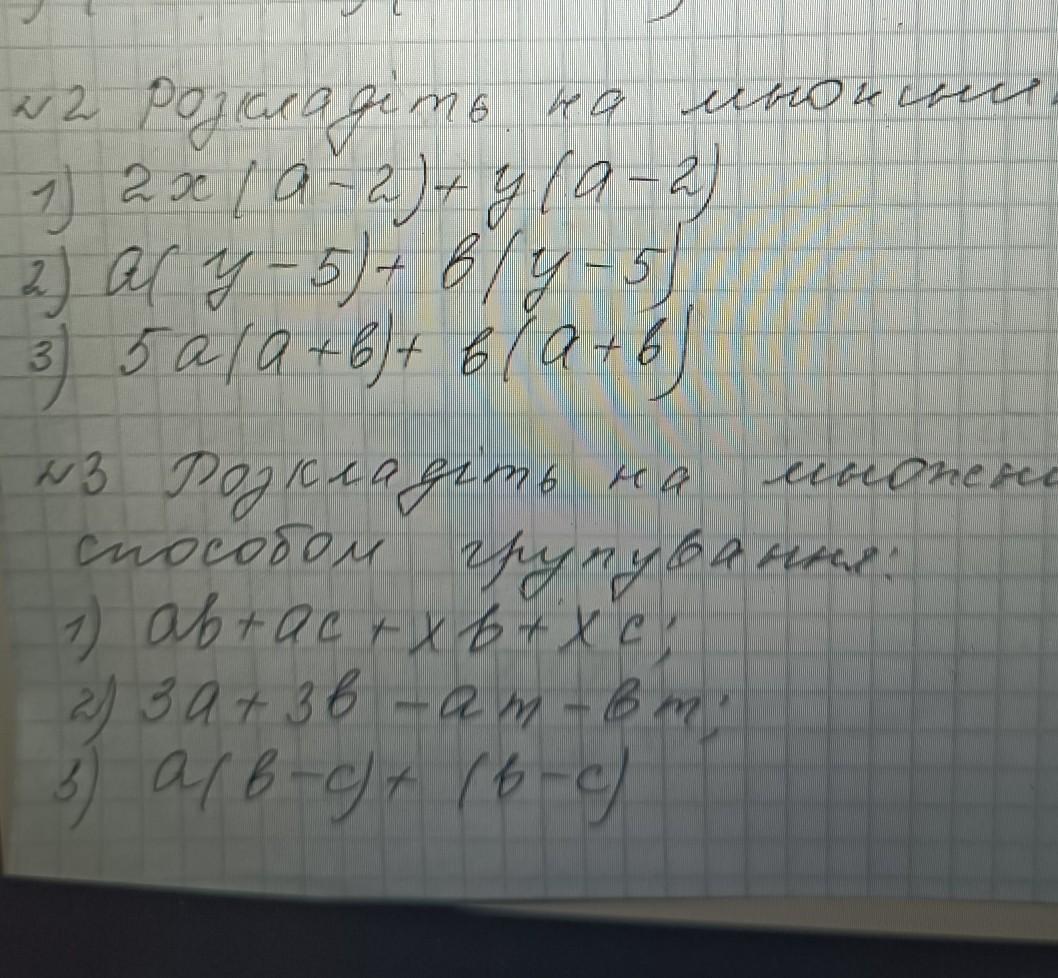 №2 Розкладіть на множни
1) 2x(a-2)+y(a-2)
2) a(y-5)+b(y-5)
3) 5a(a+b)+b(a+b)
№3 Розкладіть на множни
способом групування:
1) ab+ac+xb+xc;
2) 3a+3b-am-bm;
3) a(b-c)+(b-c)